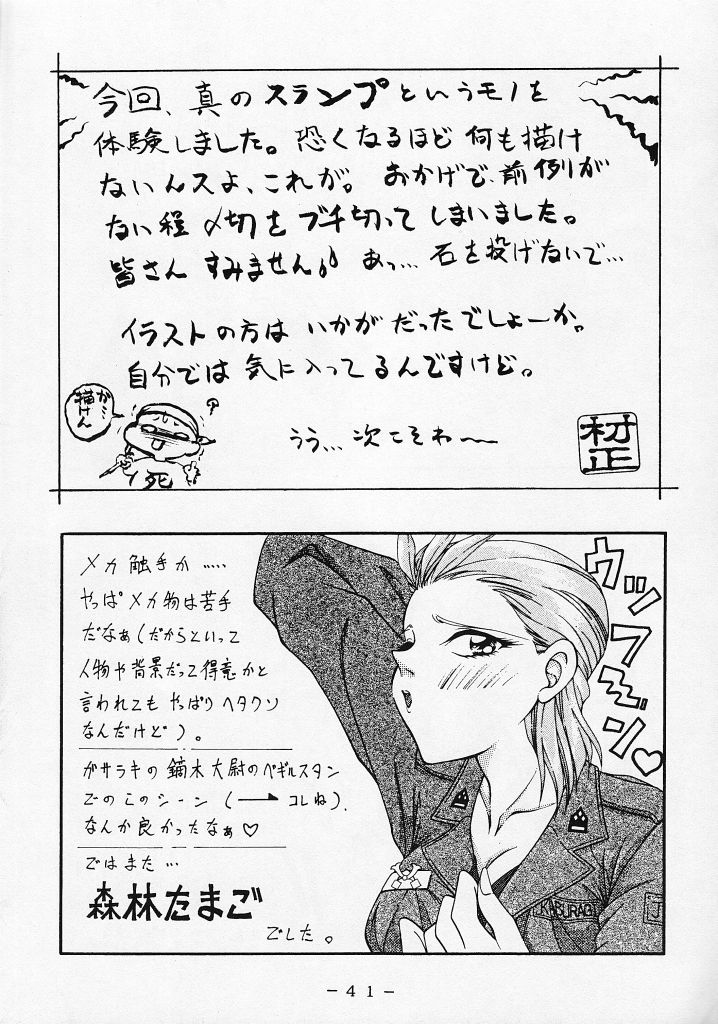 今回、真のスランプというモノを
体験しました。恐くなるほど何も描け
ないんスよ、これが。おかげで、前例が
ない程〆切をブチ切ってしまいました。
皆さんすみません♪ あっ…石を投げないで…
イラストの方はいかがだったでしょーか。
自分では気に入ってるんですけど。
が…描けん
死
うう…次こそわ〜
村正
メカ触手か……
やっぱメカ物は苦手
だなぁ(だからといって
人物や背景だって得意かと
言われてもやっぱりヘタクソ
なんだけど)。
ガサラキの鏑木大尉のベギルスタン
でのこのシーン(→コレね)、
なんか良かったなぁ♡
ではまた…
森林たまご
でした。
ウッフ〜ン♡
KABURAGI
J
-41-